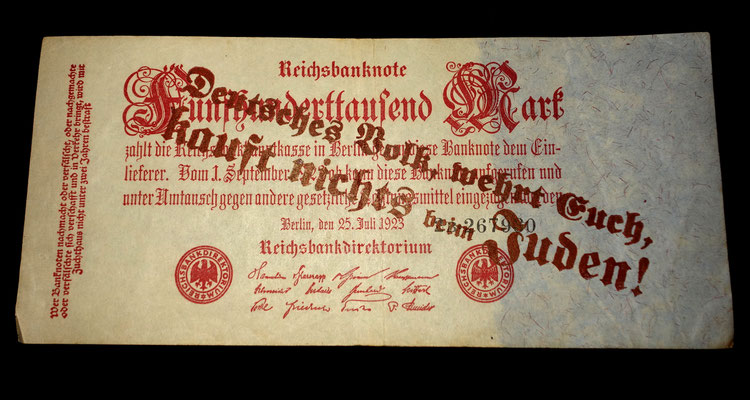 Wer Banknoten nachmacht oder verfälscht, oder nachgemachte
oder verfälschte sich verschafft und in Verkehr bringt, wird mit
Zuchthaus nicht unter zwei Jahren bestraft
Reichsbanknote
Fünfhunderttausend Mark
zahlt die Reichsbankhauptkasse in Berlin gegen diese Banknote dem Ein-
lieferer. Vom 1. September 1923 ab kann diese Banknote aufgerufen und
unter Umtausch gegen andere gesetzliche Zahlungsmittel eingezogen werden
Berlin, den 25. Juli 1923
Reichsbankdirektorium
REICHSBANKDIREKTORIUM
REICHSBANKDIREKTORIUM
Deutsches Volk, wehrt Euch,
kauft nichts beim Juden!